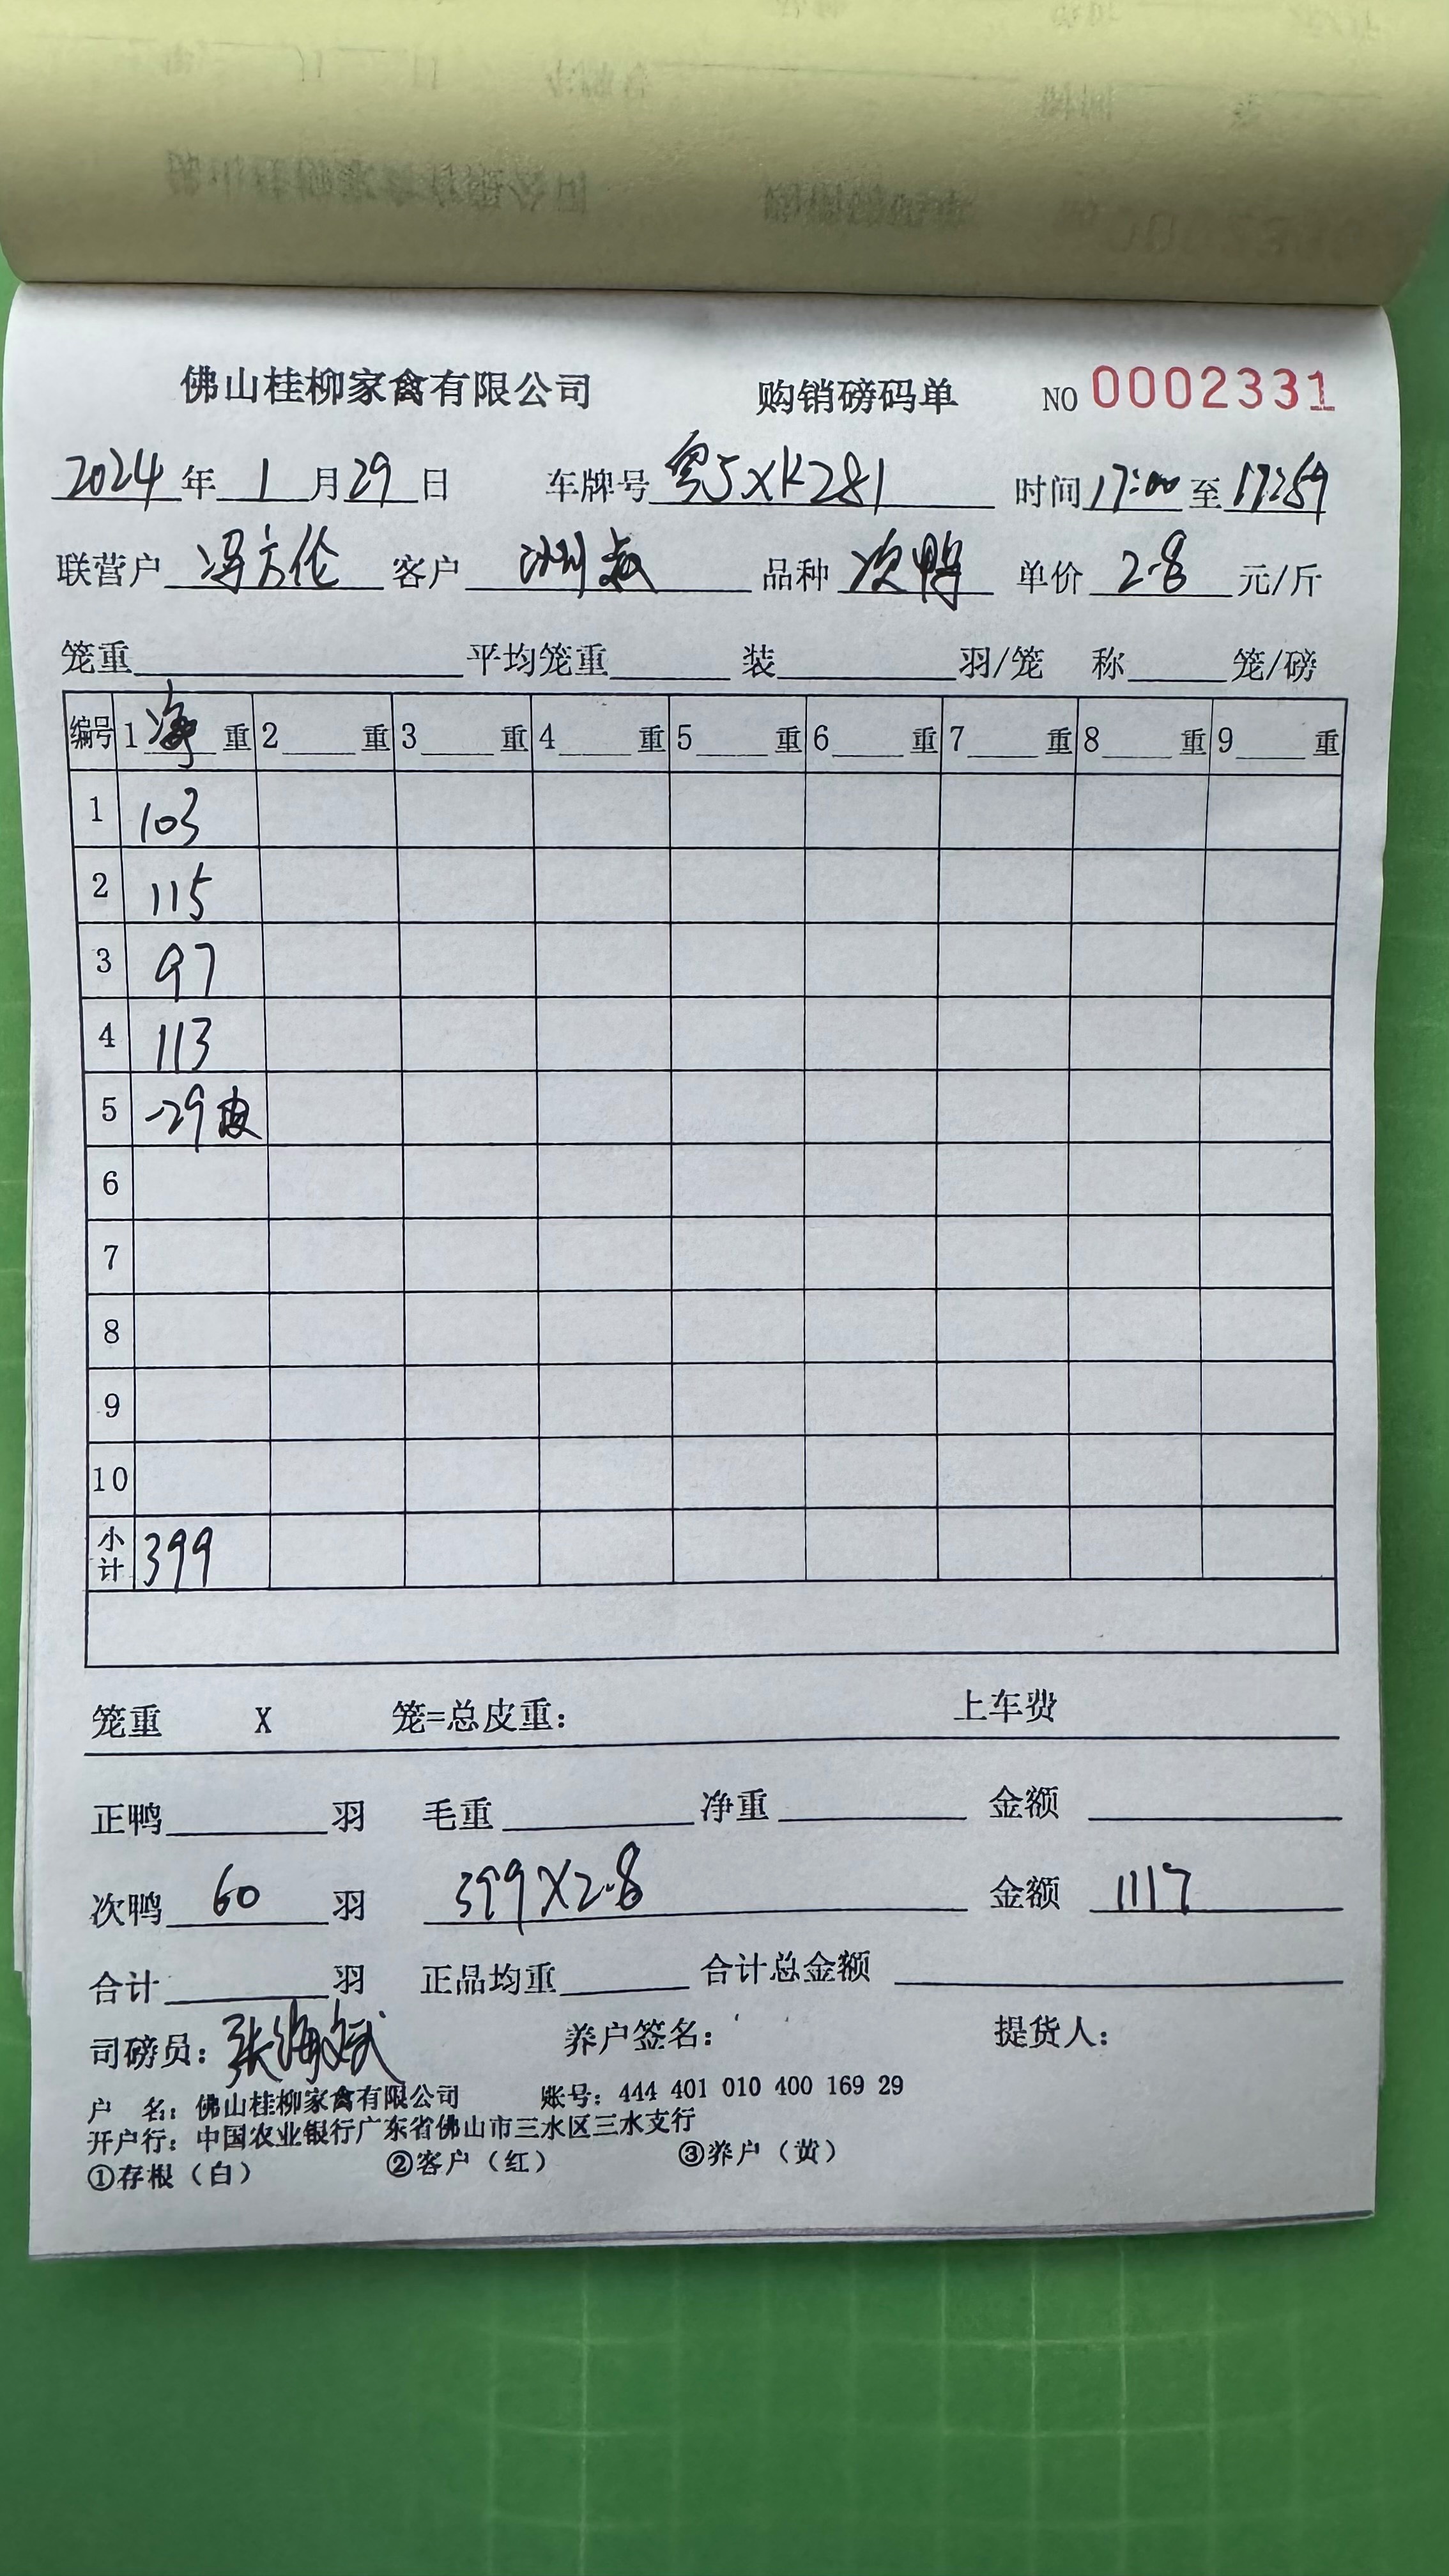 佛山桂柳家禽有限公司 购销磅码单 NO 0002331
2024年1月29日 车牌号 粤JXK281 时间17:00至17:59
联营户 冯方伦 客户 洲叔 品种 次鸭 单价 2.8 元/斤
笼重 平均笼重 装 羽/笼 称 笼/磅
编号 1 净 重 2 重 3 重 4 重 5 重 6 重 7 重 8 重 9 重
1 103
2 115
3 97
4 113
5 -29皮
6
7
8
9
10
小计 399
笼重 X 笼=总皮重: 上车费
正鸭 羽 毛重 净重 金额
次鸭 60 羽 399X2.8 金额 1117
合计 羽 正品均重 合计总金额
司磅员: 张海斌 养户签名: 提货人:
户 名: 佛山桂柳家禽有限公司 账号: 444 401 010 400 169 29
开户行: 中国农业银行广东省佛山市三水区三水支行
①存根（白） ②客户（红） ③养户（黄）